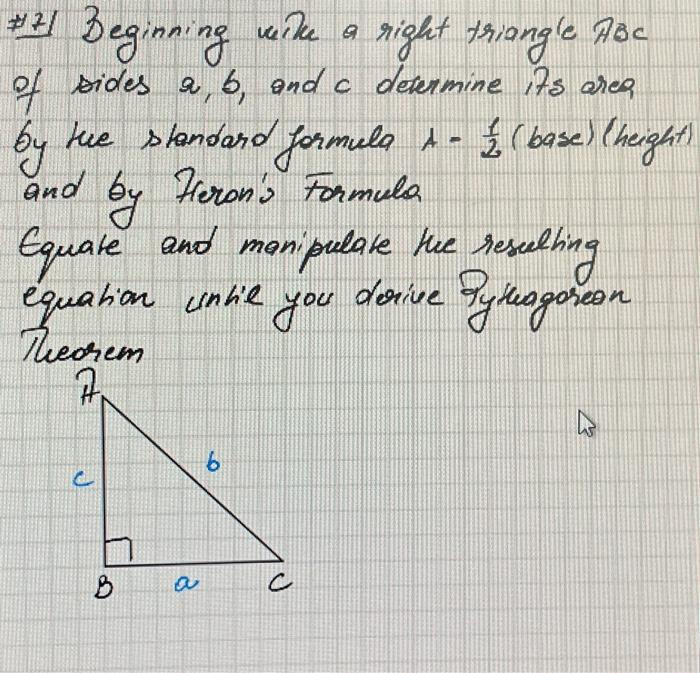 #7] Beginning with a right triangle ABC
of sides a, b, and c determine its area
by the standard formula A = 1/2 (base) (height)
and by Heron's Formula
Equate and manipulate the resulting
equation until you derive Pythagorean
Theorem
A
c
b
B
a
C